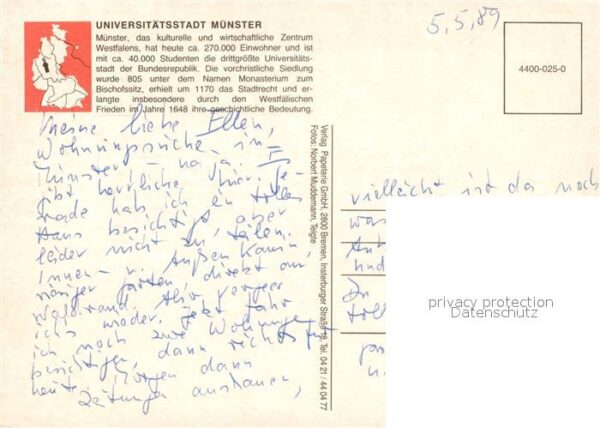 UNIVERSITÄTSSTADT MÜNSTER
Münster, das kulturelle und wirtschaftliche Zentrum
Westfalens, hat heute ca. 270.000 Einwohner und ist
mit ca. 40.000 Studenten die drittgrößte Universitäts-
stadt der Bundesrepublik. Die vorchristliche Siedlung
wurde 805 unter dem Namen Monasterium zum
Bischofssitz, erhielt um 1170 das Stadtrecht und er-
langte insbesondere durch den Westfälischen
Frieden im Jahre 1648 ihre geschichtliche Bedeutung.
5.5.89
4400-025-0
Meine liebe Ellen,
Wohnungssuche in
Münster - na ja. Es
gibt herrliche hier. Ge-
rade hab ich ein tolles
Haus besichtigt, aber
leider nicht zu teilen.
Innen- u. Außenkamin,
riesiger Garten, direkt am
Waldrand. Also vergess
ich's wieder. Jetzt fahr
ich noch zwei Wohnungen
besichtigen, dann reicht's für
heute. Morgen dann
Zeitungen austragen,
Verlag: Papeterie GmbH, 2800 Bremen, Insterburger Straße 18, Tel. 04 21 / 44 04 77
Fotos: Norbert Muddemann, Telgte
vielleicht ist da noch
was
privacy protection
Datenschutz